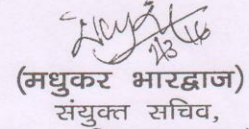 2/3/16
(मधुकर भारद्वाज)
संयुक्त सचिव,